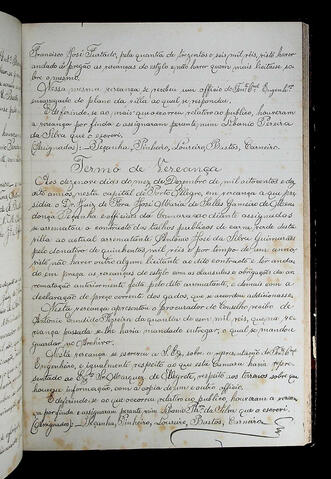 Francisco José Furtado, pela quantia de trezentos e seis mil réis, visto haver
andado de pregão as vereanças do estylo e não haver quem mais licitasse so-
bre o mesmo.
Nessa mesma vereança se recebeu um officio do Engenhº
encarregado do plano da villa ao qual se respondeu.
E deferindo-se ao mais que occorreu relativo ao publico, houveram
a vereança por finda e assignaram perante mim Libanio Pereira
da Silva que o escrevi.
(Assignados) = Peçanha, Pinheiro, Loureiro, Bastos, Carneiro.
Termo de Vereança
Aos dezenove dias do mez de Dezembro, de mil oitocentos e de-
zoito annos, nesta capital de Porto Alegre, em vereança a que pre-
sidia o Dr. Juiz de Fóra José Maria de Salles Gameiro de Men-
donça Peçanha e officiaes da Camara ao diante assignados
se arrematou o contracto dos talhos publicos de carne verde desta
villa ao actual arrematante Antonio José da Silva Guimarães
pelo donativo de quinhentos mil réis e por tempo de um anno
visto não haver outro algum licitante ao dito contracto e ter anda-
do em praça as vereanças do estylo com as clausulas e obrigações da ar-
rematação anteriormente feita pelo dito arrematante, e demais com a
declaração do preço corrente dos gados, que se accordou addicionasse.
Nesta vereança apresentou o procurador do Conselho, recibo de
Antonio Candido Ferreira da quantia de cem mil réis, que na ve-
reança passada se lhe havia mandado entregar, o qual se mandou
guardar no Archivo.
Nesta vereança se escreveu a S. Exª sobre a representação do
Engenheiro, e igualmente respeito ao que esta Camara havia repre-
sentado ao Exmº Sr. Marquez de Alegrete, respeito aos terrenos sobre que
houvesse informação, com a copia de um e outro officio.
E deferindo-se ao que occorreu relativo ao publico, houveram a verean-
ça por finda e assignaram perante mim Libanio Prª da Silva que o escrevi.
(Assignados) = Peçanha, Pinheiro, Loureiro, Bastos, Carneiro.